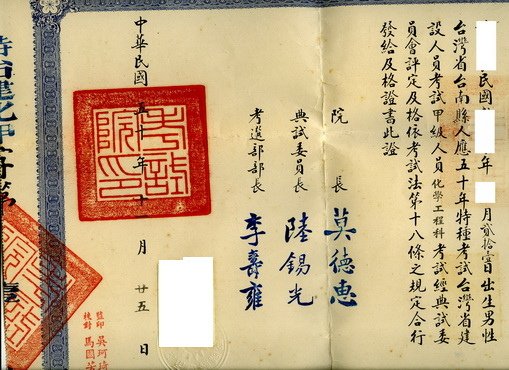 民國 年 月貳拾壹日出生男性
台灣省台南縣人應五十年特種考試台灣省建
設人員考試甲級人員化學工程科考試經典試委
員會評定及格依考試法第十八條之規定合行
發給及格證書此證
院長 莫德惠
典試委員長 陸錫光
考選部部長 李壽雍
考試院印
中華民國五十年十二月廿五日
監印 吳珂
校對 馬國